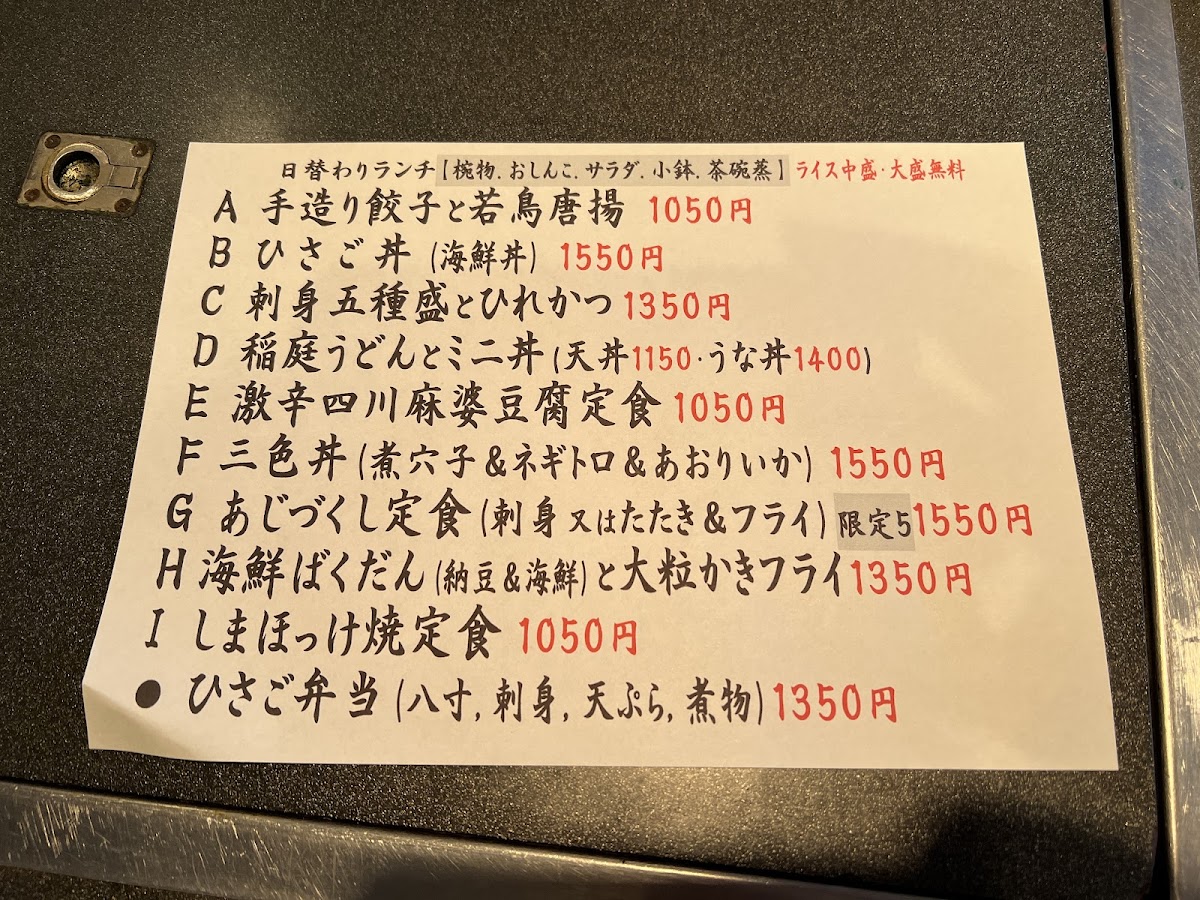 日替わりランチ【椀物.おしんこ.サラダ.小鉢.茶碗蒸】ライス中盛・大盛無料
A 手造り餃子と若鳥唐揚 1050円
B ひさご丼 (海鮮丼) 1550円
C 刺身五種盛とひれかつ 1350円
D 稲庭うどんとミニ丼(天丼1150・うな丼1400)
E 激辛四川麻婆豆腐定食 1050円
F 三色丼(煮穴子&ネギトロ&あおりいか) 1550円
G あじづくし定食(刺身又はたたき&フライ) 限定5 1550円
H 海鮮ばくだん(納豆&海鮮)と大粒かきフライ1350円
I しまほっけ焼定食 1050円
● ひさご弁当(八寸,刺身,天ぷら,煮物)1350円